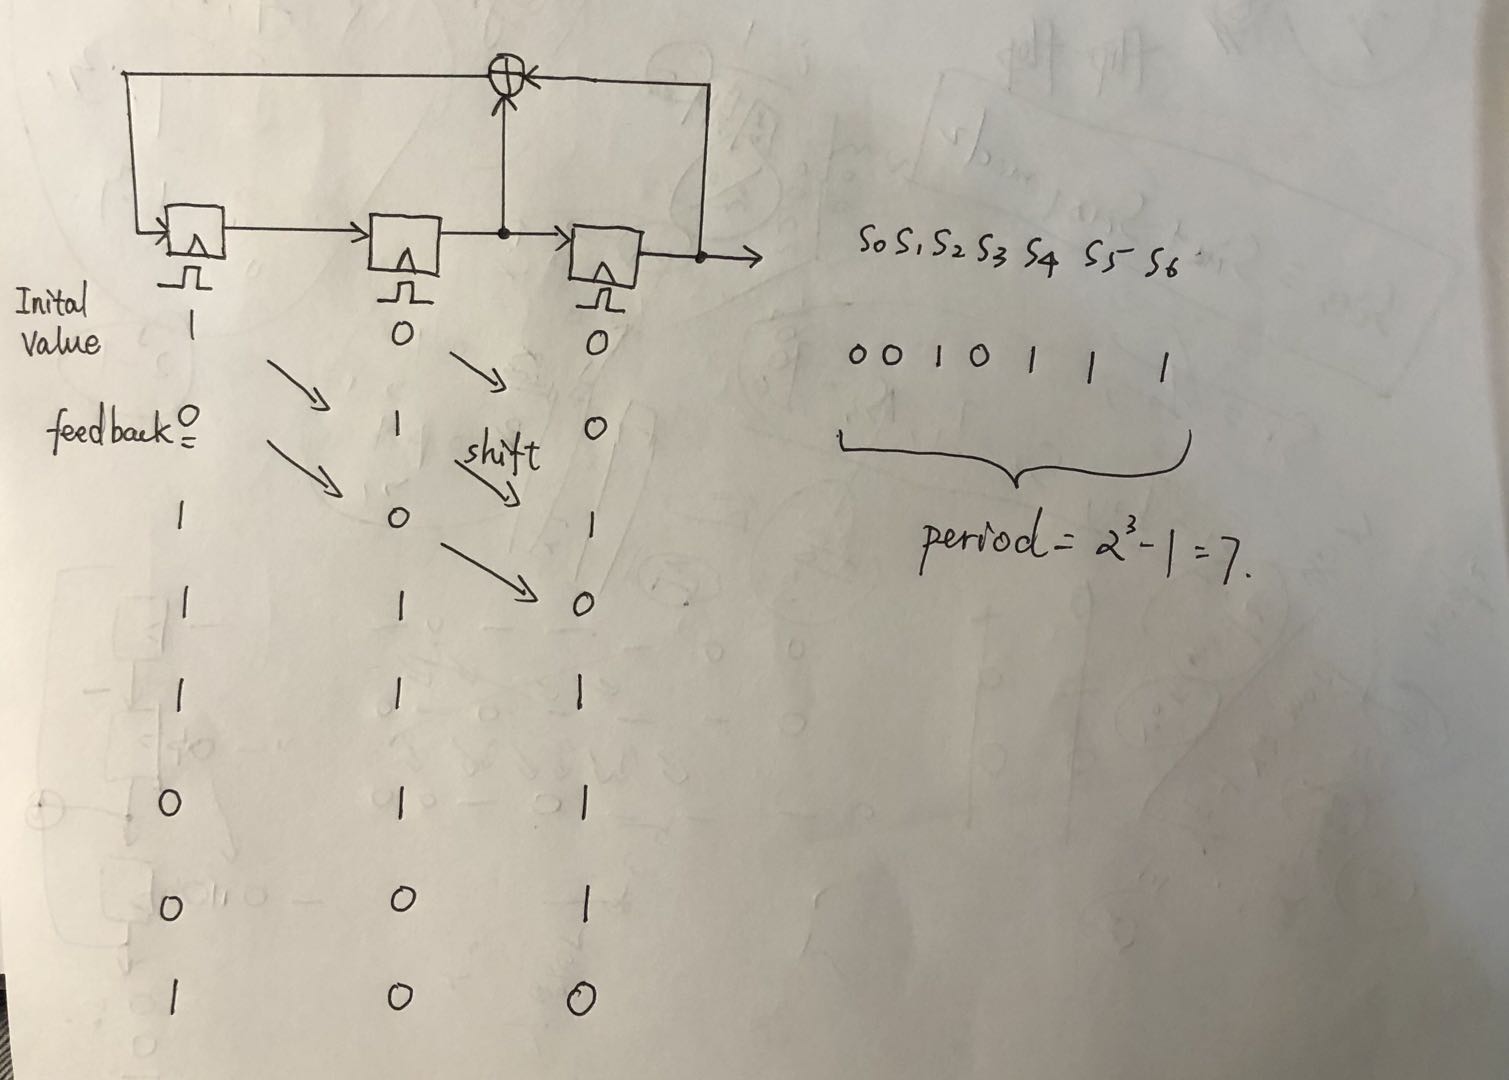 Inital
value
1 0 0
feedback 0 1 0
shift
1 0 1
1 1 0
1 1 1
0 1 1
0 0 1
1 0 0
S₀ S₁ S₂ S₃ S₄ S₅ S₆
0 0 1 0 1 1 1
period = 2³-1 = 7.